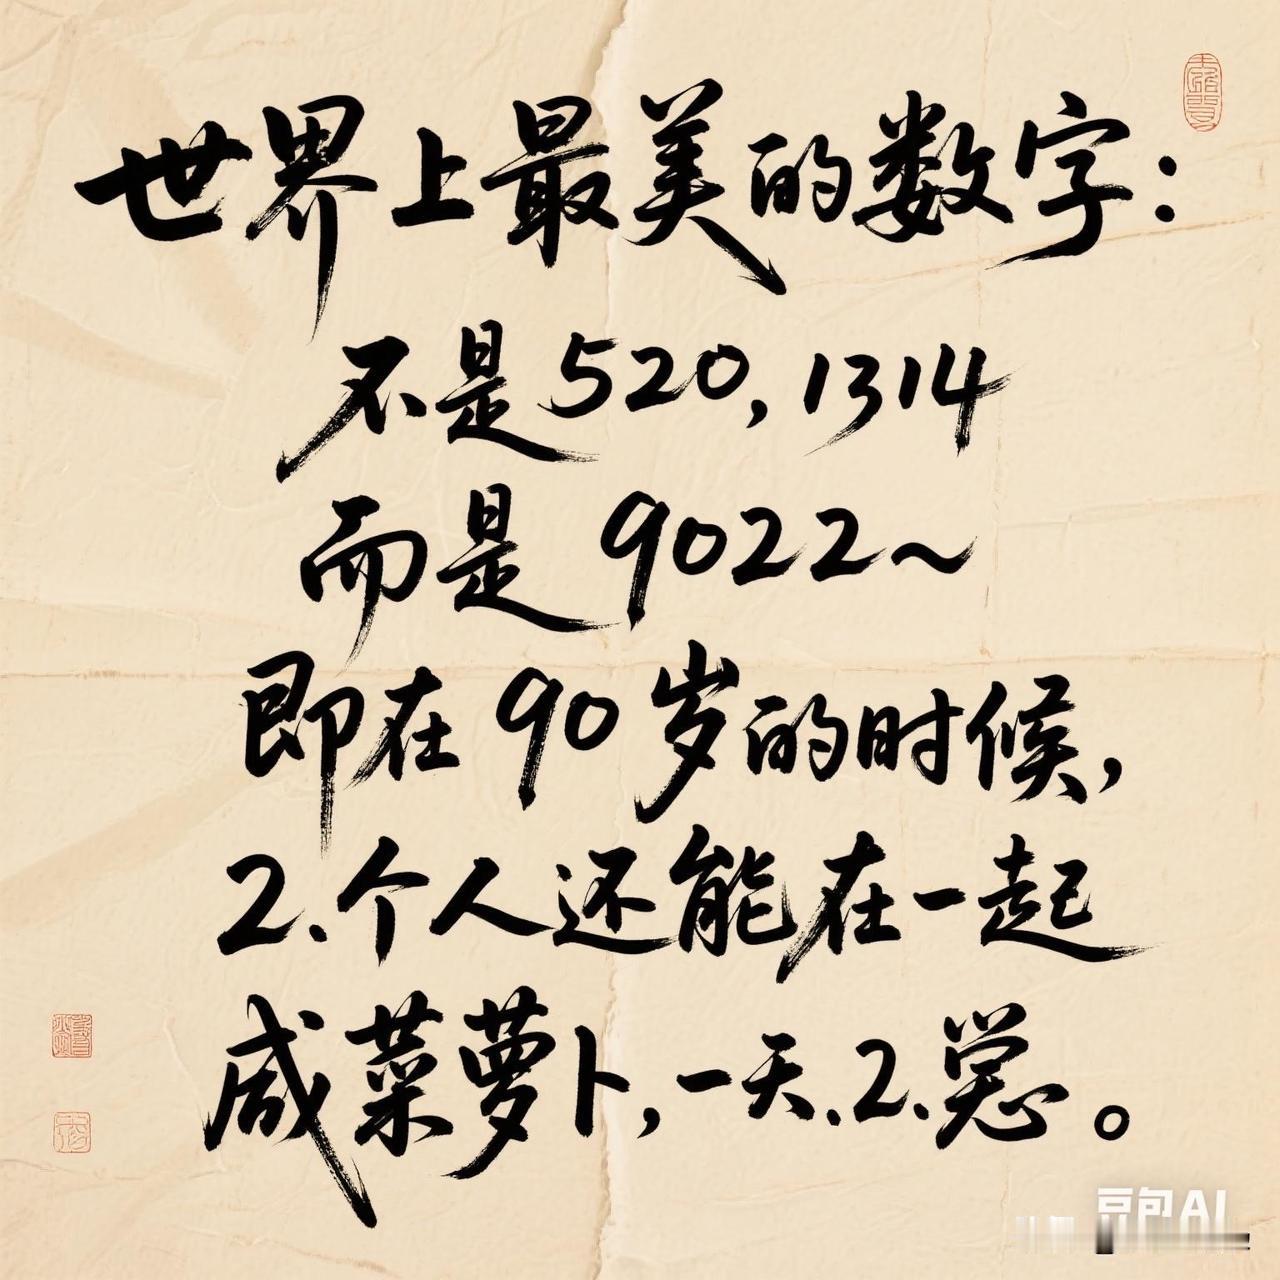 世界上最美的数字：
不是520,1314
而是9022~
即在90岁的时候,
2.个人还能在一起
咸菜萝卜,一天.2.
豆包AI